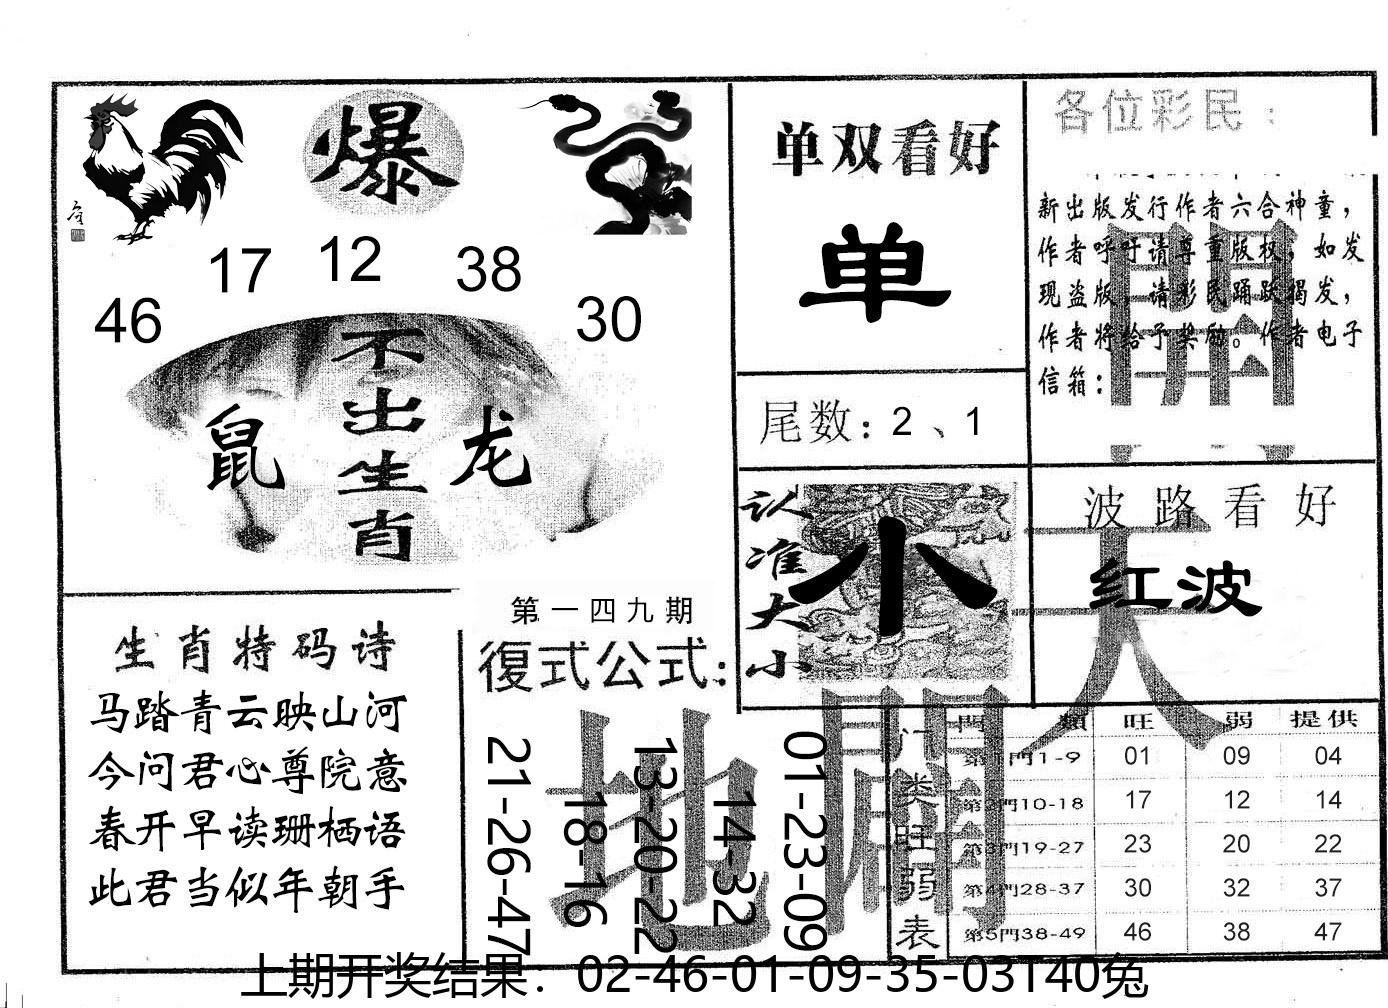 爆
17 12 38
46 30
不出生肖
鼠 龙
单双看好
单
尾数：2、1
各位彩民：
新出版发行作者六合神童，
作者呼吁请尊重版权，如发
现盗版，请彩民踊跃揭发，
作者将给予奖励。作者电子
信箱：
認准大小
小
波路看好
红波
開
天
地
闢
生肖特码诗
马踏青云映山河
今问君心尊院意
春开早读珊栖语
此君当似年朝手
第一四九期
復式公式：
21-26-47
18-16
13-20-22
14-32
01-23-09
门类旺弱表
門類 旺 弱 提供
第1門1-9 01 09 04
第2門10-18 17 12 14
第3門19-27 23 20 22
第4門28-37 30 32 37
第5門38-49 46 38 47
上期开奖结果：02-46-01-09-35-03T40兔